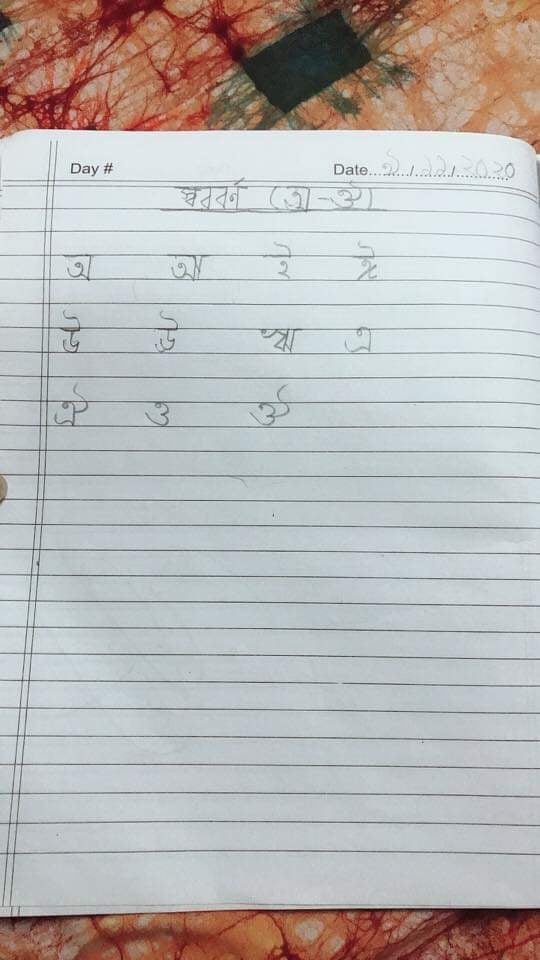 Day # Date ২.১১.২০২০
স্বরবর্ণ (অ-ঔ)
অ আ ই ঈ
উ ঊ ঋ এ
ঐ ও ঔ